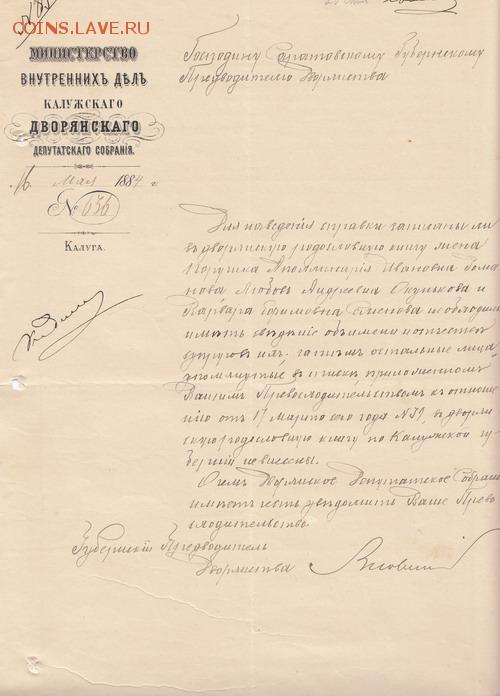 COINS.LAVE.RU
МИНИСТЕРСТВО
ВНУТРЕННИХЪ ДѢЛЪ
КАЛУЖСКАГО
ДВОРЯНСКАГО
ДЕПУТАТСКАГО СОБРАНІЯ.
16 Мая 1884 г.
№ 636
КАЛУГА.
Господину Саратовскому Губернскому
Предводителю Дворянства
Для наведенія справки записаны ли
въ дворянскую родословную книгу жена
Аполлинарія Ивановна
Любовь Андреевна Окунькова и
Варвара необходимо
имѣть свѣдѣніе объ имени и отчествѣ
супруговъ ихъ, затѣмъ остальныя лица
въ спискѣ приложенномъ
Вашимъ Превосходительствомъ къ отноше
нію отъ 17 Марта сего года № 39, въ дворян
скую родословную книгу по Калужской гу
берніи не внесены.
О чемъ Дворянское Депутатское Собраніе
имѣетъ честь увѣдомить Ваше Прево
сходительство.
Губернскій Предводитель
Дворянства